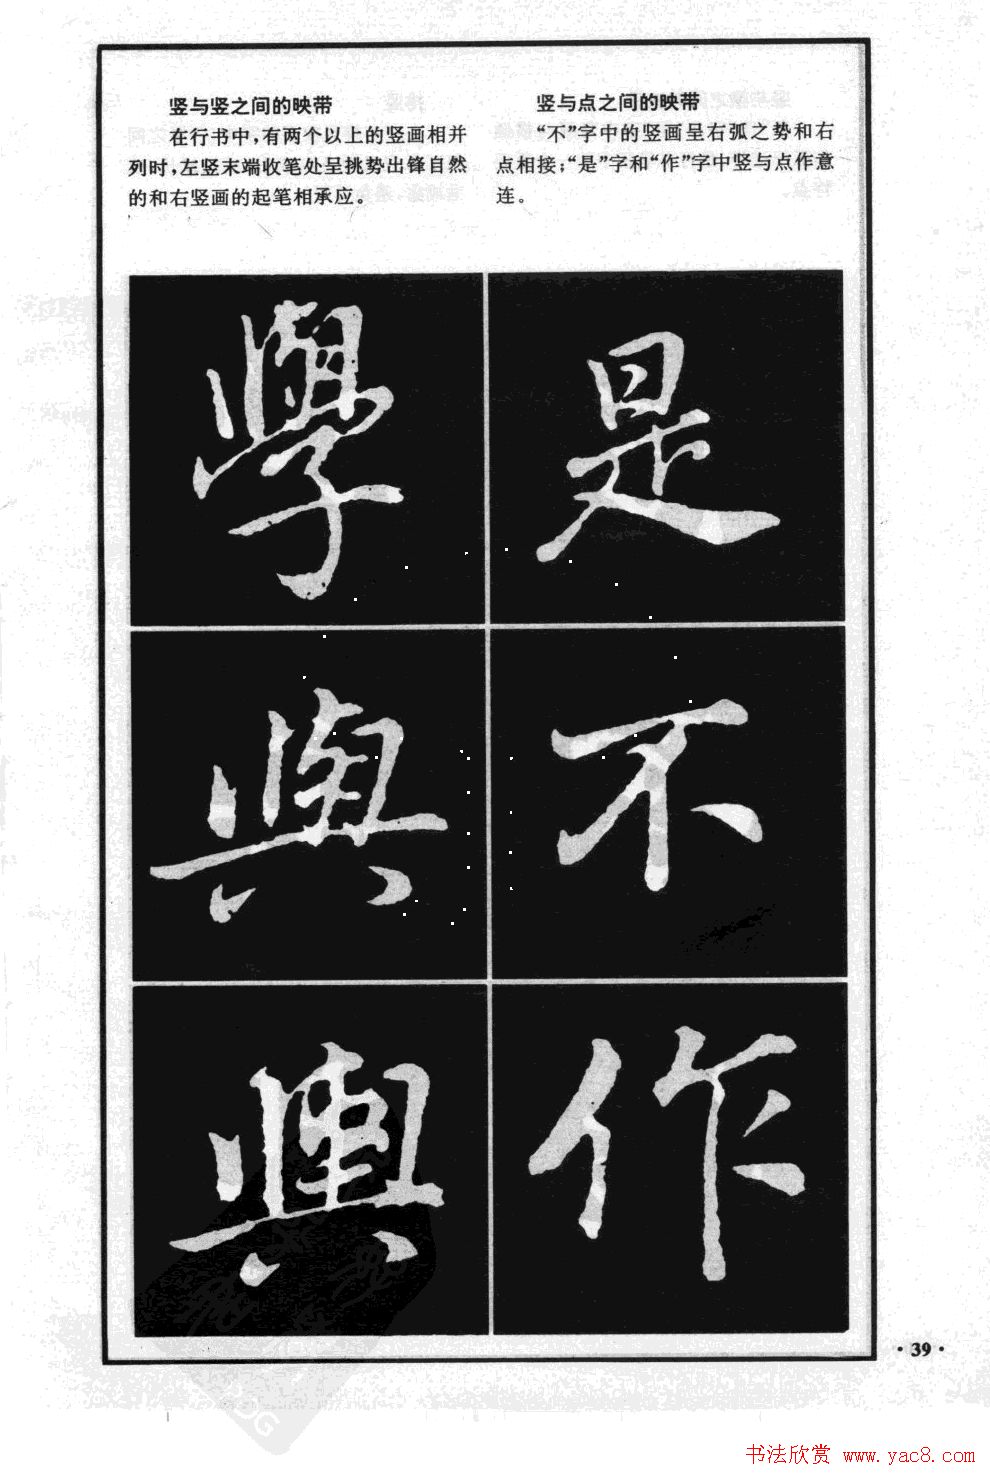 竖与竖之间的映带
在行书中,有两个以上的竖画相并
列时,左竖末端收笔处呈挑势出锋自然
的和右竖画的起笔相承应。
竖与点之间的映带
“不”字中的竖画呈右弧之势和右
点相接;“是”字和“作”字中竖与点作意
连。
學
是
與
不
作
·39·
书法欣赏 www.yac8.com